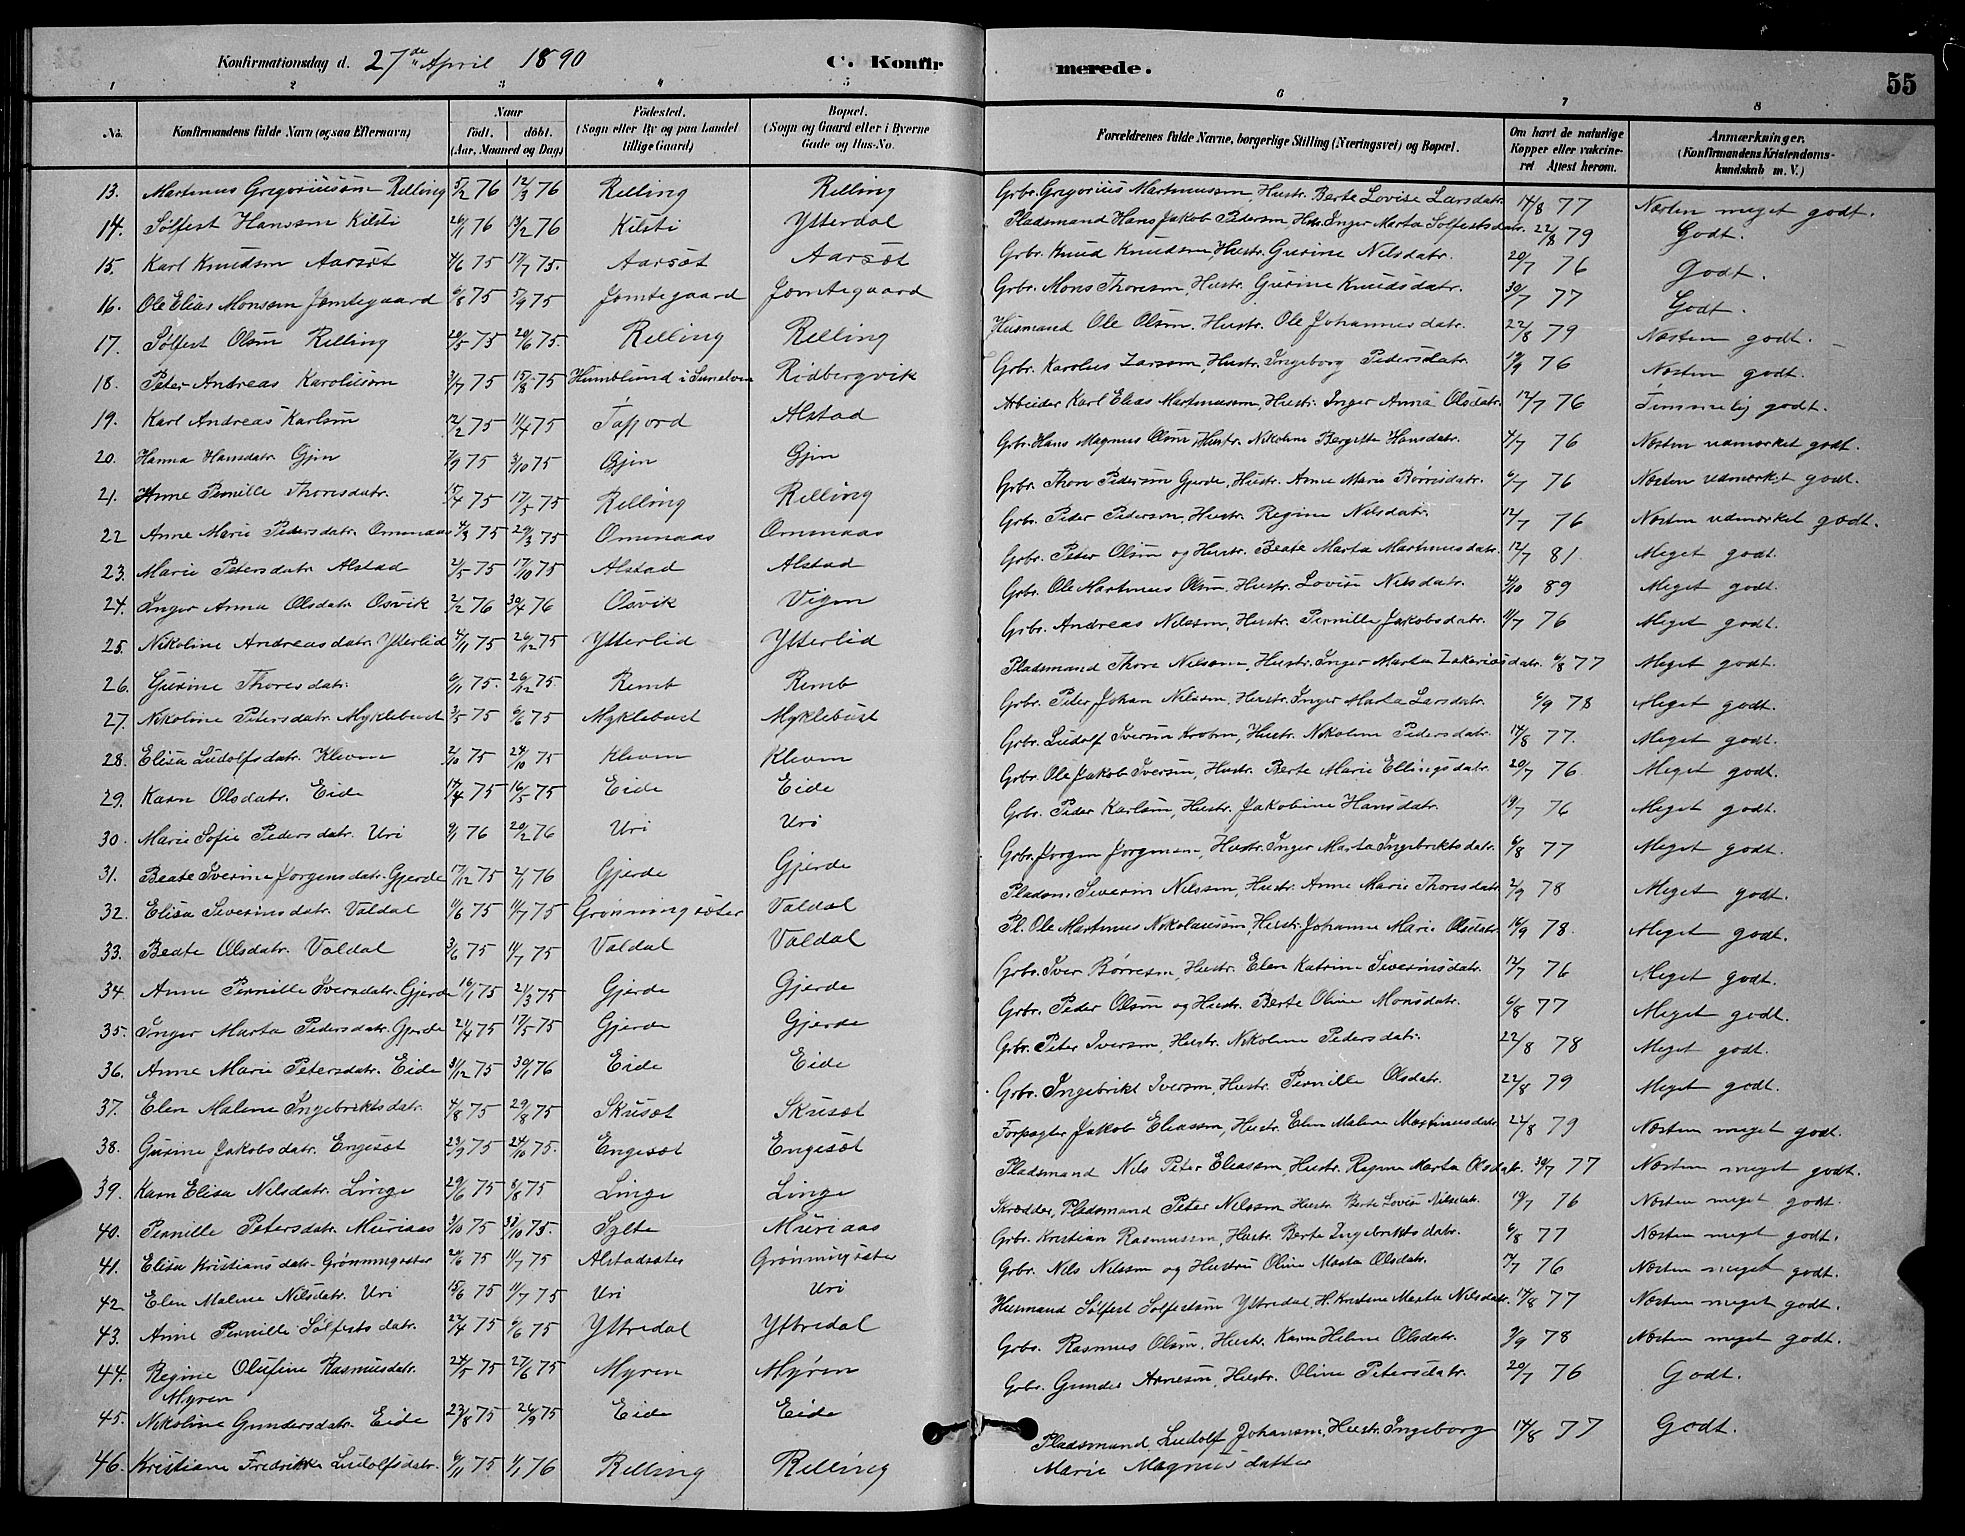 Konfirmationsdag d. 27de April 1890 C. Konfirmerede. 55
1 2 3 4 5 6 7 8
No. Konfirmandens fulde Navn (ogsaa Efternavn) Naar födt. döbt. (Aar, Maaned og Dag) Födested. (Sogn eller By og paa Landet tillige Gaard) Bopæl. (Sogn og Gaard eller i Byerne Gade og Hus-No. Forældrenes fulde Navne, borgerlige Stilling (Næringsvei) og Bopæl. Om havt de naturlige Kopper eller vakcineret Attest herom. Anmærkninger. (Konfirmandens Kristendomskundskab m. V.)
13. Martinus Gregoriusson Relling 5/2 76 12/3 76 Relling Relling Grbr. Gregorius Martinussen, Hustr. Berte Lovise Larsdatr. 14/8 77 Næsten meget godt.
14. Sølfest Hanssen Kilsti 26/1 76 13/2 76 Kilsti Ytterdal Pladsmand Hans Jakob Pedersen, Hustr. Inger Marta Solfestsdatr. 22/8 79 Godt.
15. Karl Knudsen Aarsæt 4/6 75 17/7 75. Aarsæt Aarsæt Grbr. Knud Knudsen, Hustr. Gurine Nilsdatr. 20/7 76 Godt.
16. Ole Elias Monssen Jemtegaard 6/8 75 5/9 75 Jemtegaard Jemtegaard Grbr. Mons Thoresen, Hustr. Gurine Knudsdatr. 30/7 77 Godt.
17. Sølfest Olsen Relling 20/5 75 20/6 75. Relling Relling Husmand Ole Olsen, Hustr. Ole Johannesdatr. 22/8 79 Næsten godt.
18. Peter Andreas Karolusen 3/7 75 15/8 75 Humblund i Sunelven Rødbergvik Grbr. Karolus Larsen, Hustr. Ingeborg Pedersdatr. 19/9 76 Næsten godt.
19. Karl Andreas Karlsen 12/2 75 11/4 75 Tafjord Alstad Arbeider Karl Elias Martinussen, Hustr. Inger Anna Olsdatr. 12/7 76 Temmelig godt.
20. Hanna Hansdatr. Gjen 7/9 75 3/10 75 Gjen Gjen Grbr. Hans Magnus Olsen, Hustr. Nikoline Bergitte Hansdatr. 4/7 76 Næsten udmærket godt.
21. Anne Pernille Thoresdatr. 15/4 75 17/5 75 Relling Relling Grbr. Thore Pedersen Gjerde, Hustr. Anne Marie Børresdatr. 6/7 76 Næsten udmærket godt.
22 Anne Marie Pedersdatr. Omenaas 4/3 75 29/3 75 Omenaas Omenaas Grbr. Peder Pedersen, Hustr. Regine Nilsdatr. 12/7 76 Næsten udmærket godt.
23. Marie Petersdatr. Alstad 21/5 75 17/10 75 Alstad Alstad Grbr. Peter Olsen og Hustr. Beate Marta Martinusdatr. 12/7 81. Meget godt.
24. Inger Anna Olsdatr. Osvik 2/2 76 30/4 76 Osvik Vigen Grbr. Ole Martinus Olsen, Hustr. Lovise Nilsdatr. 4/10 89 Meget godt.
25. Nikoline Andreasdatr. Ytterlid 4/11 75 26/12 75 Ytterlid Ytterlid Grbr. Andreas Nilssen, Hustr. Pernille Jakobsdatr. 11/7 76 Meget godt.
26. Gurine Thoresdatr. 6/11 75. 26/12 75. Remb Remb Pladsmand Thore Nilssen, Hustr. Inger Marta Zakariasdatr. 6/8 77 Meget godt.
27. Nikoline Petersdatr. Myklebust 3/5 75 6/6 75 Myklebust Myklebust Grbr. Peter Johan Nilssen, Hustr. Inger Marta Larsdatr. 6/9 78 Meget godt.
28. Elisa Ludolfsdatr. Kleven 2/10 75 24/10 75 Kleven Kleven Grbr. Ludolf Iversen, Hustr. Nikoline Pedersdatr. 14/8 77. Meget godt.
29. Karen Olsdatr. Eide 14/4 75 16/5 75 Eide Eide Grbr. Ole Jakob Iversen, Hustr. Berte Marie Ellingsdatr. 20/7 76 Meget godt.
30. Marie Sofie Pedersdatr. Uri 9/1 76 20/2 76 Uri Uri Grbr. Peder Karlsen, Hustr. Jakobine Hansdatr. 19/7 76 Meget godt.
31. Beate Iverine Jørgensdatr. Gjerde 17/12 75 2/1 76 Gjerde Gjerde Grbr. Jørgen Jørgensen, Hustr. Inger Marta Ingebriktsdatr. 6/8 77 Meget godt.
32. Elisa Severinsdatr. Valdal 11/6 75 11/7 75 Grønningsæter Valdal Pladsm. Severin Nilssen, Hustr. Anne Marie Thoresdatr. 2/9 78 Meget godt.
33. Beate Olsdatr. Valdal 3/6 75 11/7 75 Valdal Valdal Pl. Ole Martinus Nikolaussen, Hustr. Johanne Marie Olsdatr. 16/9 78. Meget godt.
34. Anne Pernille Iversdatr. Gjerde 16/1 75 21/3 75 Gjerde Gjerde Grbr. Iver Børresen, Hustr. Elen Katrine Severinsdatr. 12/7 76 Meget godt.
35. Inger Marta Pedersdatr. Gjerde 21/4 75 17/5 75 Gjerde Gjerde Grbr. Peder Olsen og Hustr. Berte Oline Monsdatr. 6/8 77 Meget godt.
36. Anne Marie Petersdatr. Eide 31/12 75 30/1 76 Eide Eide Grbr. Peter Iversen, Hustr. Nikoline Pedersdatr. 22/8 78 Meget godt.
37. Elen Malene Ingebriktsdatr. 4/8 75 29/8 75 Skusæt Skusæt Grbr. Ingebrikt Iversen, Hustr. Pernille Olsdatr. 22/8 79 Meget godt.
38. Gurine Jakobsdatr. Engesæt 23/9 75 24/10 75. Engesæt Engesæt Forpagter Jakob Eliassen, Hustr. Elen Malene Martinusdatr. 22/8 79 Næsten meget godt.
39. Karen Elisa Nilsdatr. Linge 29/6 75 8/8 75 Linge Linge Pladsmand Nils Peter Eliassen, Hustr. Regine Marta Olsdatr. 30/7 77 Næsten meget godt.
40. Pernille Petersdatr. Muriaas 3/10 75 31/10 75. Sylte Muriaas Skrædder, Pladsmand Peter Nilssen Hustr. Berte Lovise Nilsdatr. 19/7 76 Næsten meget godt.
41. Elisa Kristiansdatr. Grønningsæter 20/6 75 11/7 75 Alstadsæter Grønningsæter Grbr. Kristian Rasmussen, Hustr. Berte Ingebriktsdatr. 6/8 77 Næsten meget godt.
42 Elen Malene Nilsdatr. Uri 15/6 75 11/7 75 Uri Uri Grbr. Nils Nilssen og Hustru Oline Marta Olsdatr. 7/7 76 Næsten meget godt.
43. Anne Pernille Solfestsdatr. 22/4 75 6/6 75 Yttredal Yttredal Husmand Sølfest Solfestsen Yttredal, H. Kristine Marta Nilsdatr. 14/8 77 Næsten meget godt.
44. Regine Olufine Rasmusdatr. Myren 24/5 75 27/6 75 Myren Myren Grbr. Rasmus Olsen, Hustr. Karen Helene Olsdatr. 3/9 78 Næsten meget godt.
45. Nikoline Gundersdatr. Eide 23/8 75 26/9 75 Eide Eide Grbr. Gunder Arnesen, Hustr. Oline Petersdatr. 20/7 76 Godt.
46. Kristiane Fredrikke Ludolfsdatr. 6/11 75 1/1 76 Relling Relling Pladsmand Ludolf Johansen, Hustr. Ingeborg Marie Magnusdatter 14/8 77 Godt.